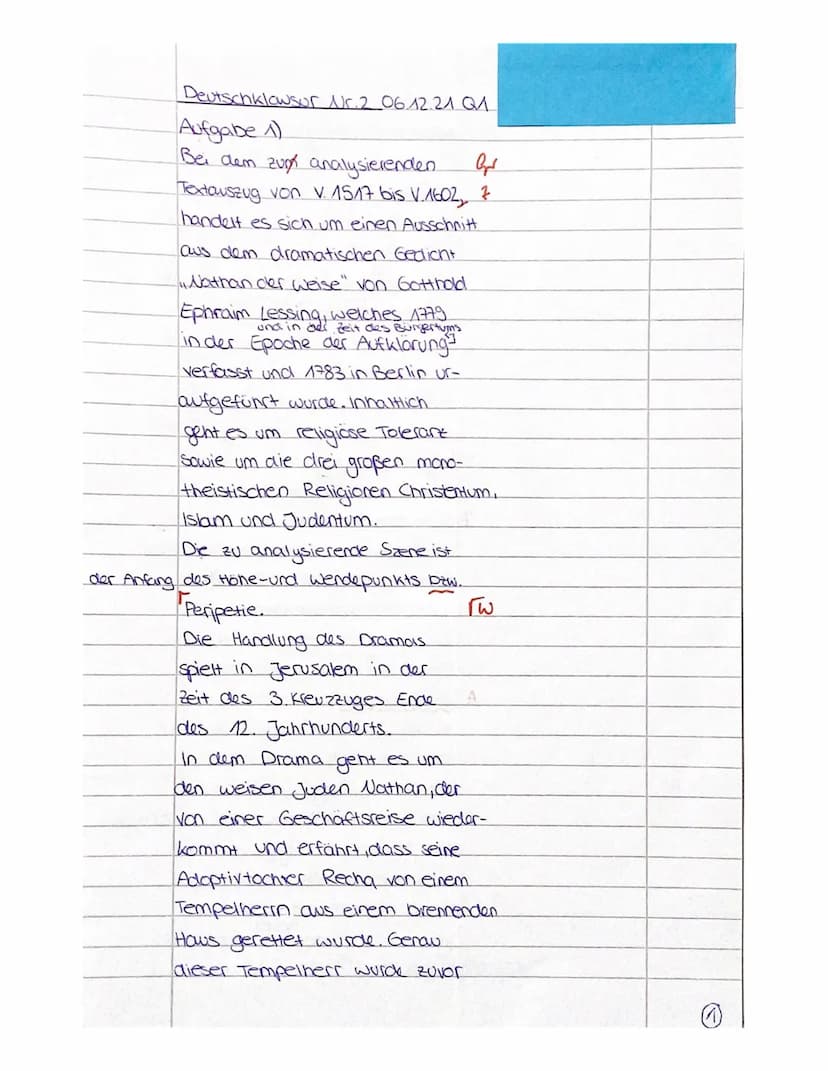 Deutschklausur Nr.2 06.12.21 Q1
Aufgabe 1)
Bei dem zum analysierenden Gr
Textauszug von V.1517 bis V.1602, Z
handelt es sich um einen Ausschnitt
aus dem dramatischen Gedicht
„Nathan der Weise" von Gotthold
Ephraim Lessing, welches 1779
und in der Zeit des Bürgertums
in der Epoche der Aufklärung
verfasst und 1783 in Berlin ur-
aufgeführt wurde. Inhaltlich
geht es um religiöse Toleranz
sowie um die drei großen mono-
theistischen Religionen Christentum,
Islam und Judentum.
Die zu analysierende Szene ist
der Anfang des Höhe-und Wendepunkts bzw.
Peripetie. ΓW
Die Handlung des Dramas
spielt in Jerusalem in der
Zeit des 3. Kreuzzuges Ende A
des 12. Jahrhunderts.
In dem Drama geht es um
den weisen Juden Nathan, der
von einer Geschäftsreise wieder-
kommt und erfährt, dass seine
Adoptivtochter Recha von einem
Tempelherrn aus einem brennenden
Haus gerettet wurde. Genau
dieser Tempelherr wurde zuvor
1